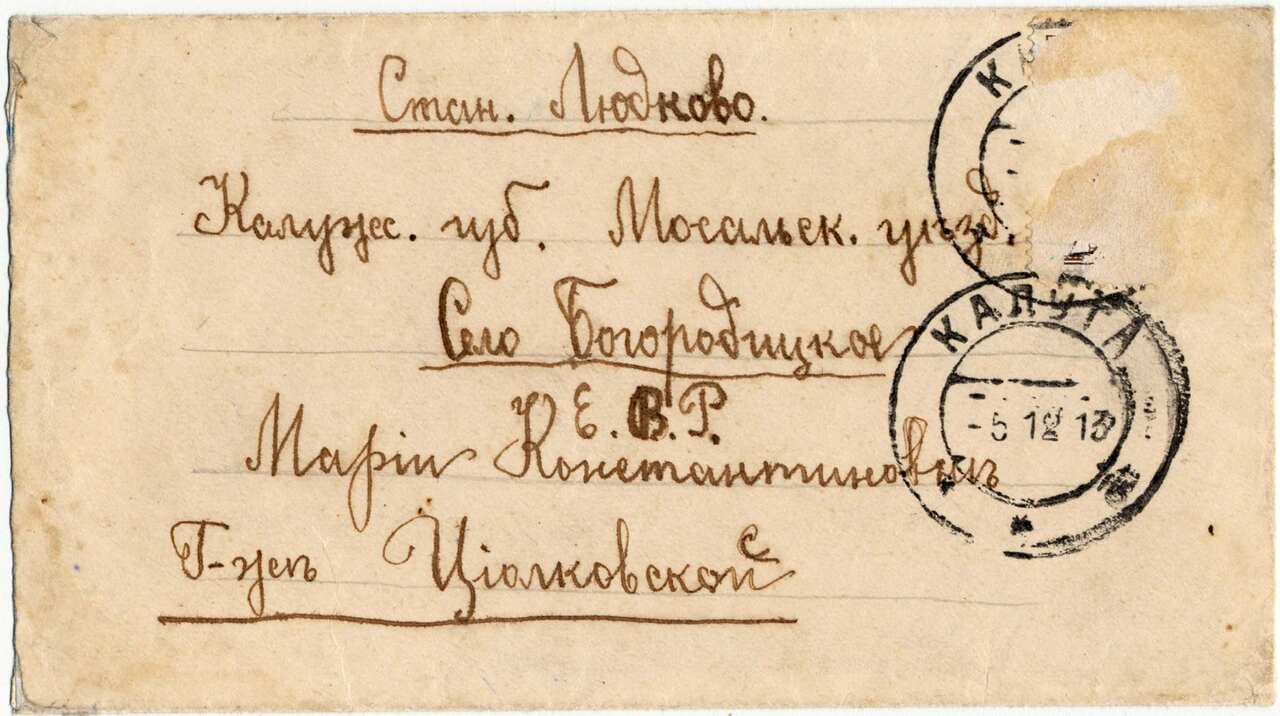 Стан. Людково.
Калужс. губ. Мосальск. уѣзд.
Село Богородицкое
Е. В. Р.
Маріи Константиновнѣ
Г-жѣ Ціолковской
КАЛУГА
-5 12 13